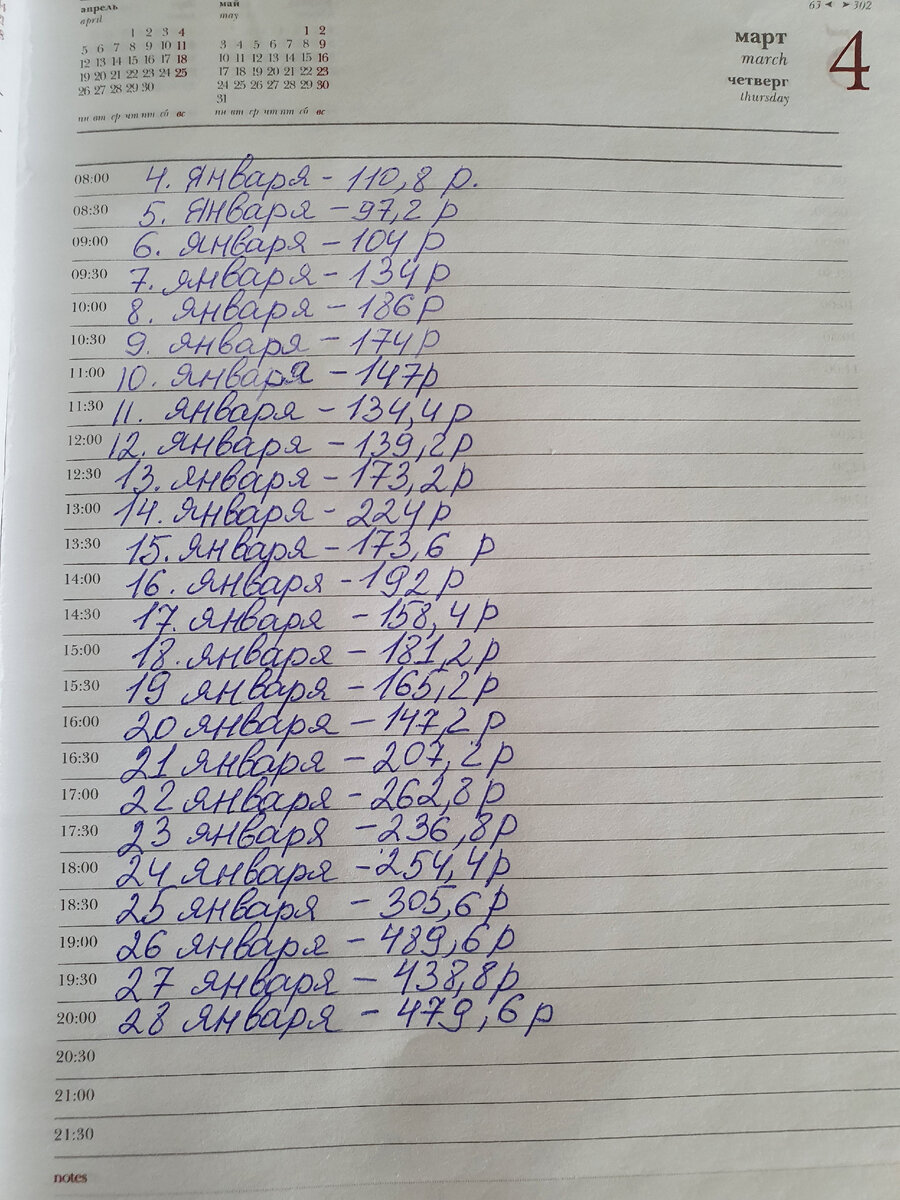 63 ◄ ► 302
апрель
april
1 2 3 4
5 6 7 8 9 10 11
12 13 14 15 16 17 18
19 20 21 22 23 24 25
26 27 28 29 30
пн вт ср чт пт сб вс
май
may
1 2
3 4 5 6 7 8 9
10 11 12 13 14 15 16
17 18 19 20 21 22 23
24 25 26 27 28 29 30
31
пн вт ср чт пт сб вс
март
march
четверг
thursday
4
08:00 4. Января - 110,8 р.
08:30 5. Января - 97,2 р
09:00 6. января - 104 р
09:30 7. января - 134 р
10:00 8. января - 186 р
10:30 9. января - 174 р
11:00 10. января - 147р
11:30 11. января - 134,4 р
12:00 12. января - 139,2р
12:30 13. января - 173,2р
13:00 14. января - 224 р
13:30 15. января - 173,6 р
14:00 16. января - 192 р
14:30 17. января - 158,4 р
15:00 18. января - 181,2 р
15:30 19 января - 165,2 р
16:00 20 января - 147,2 р
16:30 21 января - 207,2 р
17:00 22 января - 262,8 р
17:30 23 января - 236,8р
18:00 24 января - 254,4р
18:30 25 января - 305,6 р
19:00 26 января - 489,6 р
19:30 27 января - 438,8р
20:00 28 января - 479,6 р
20:30
21:00
21:30
notes